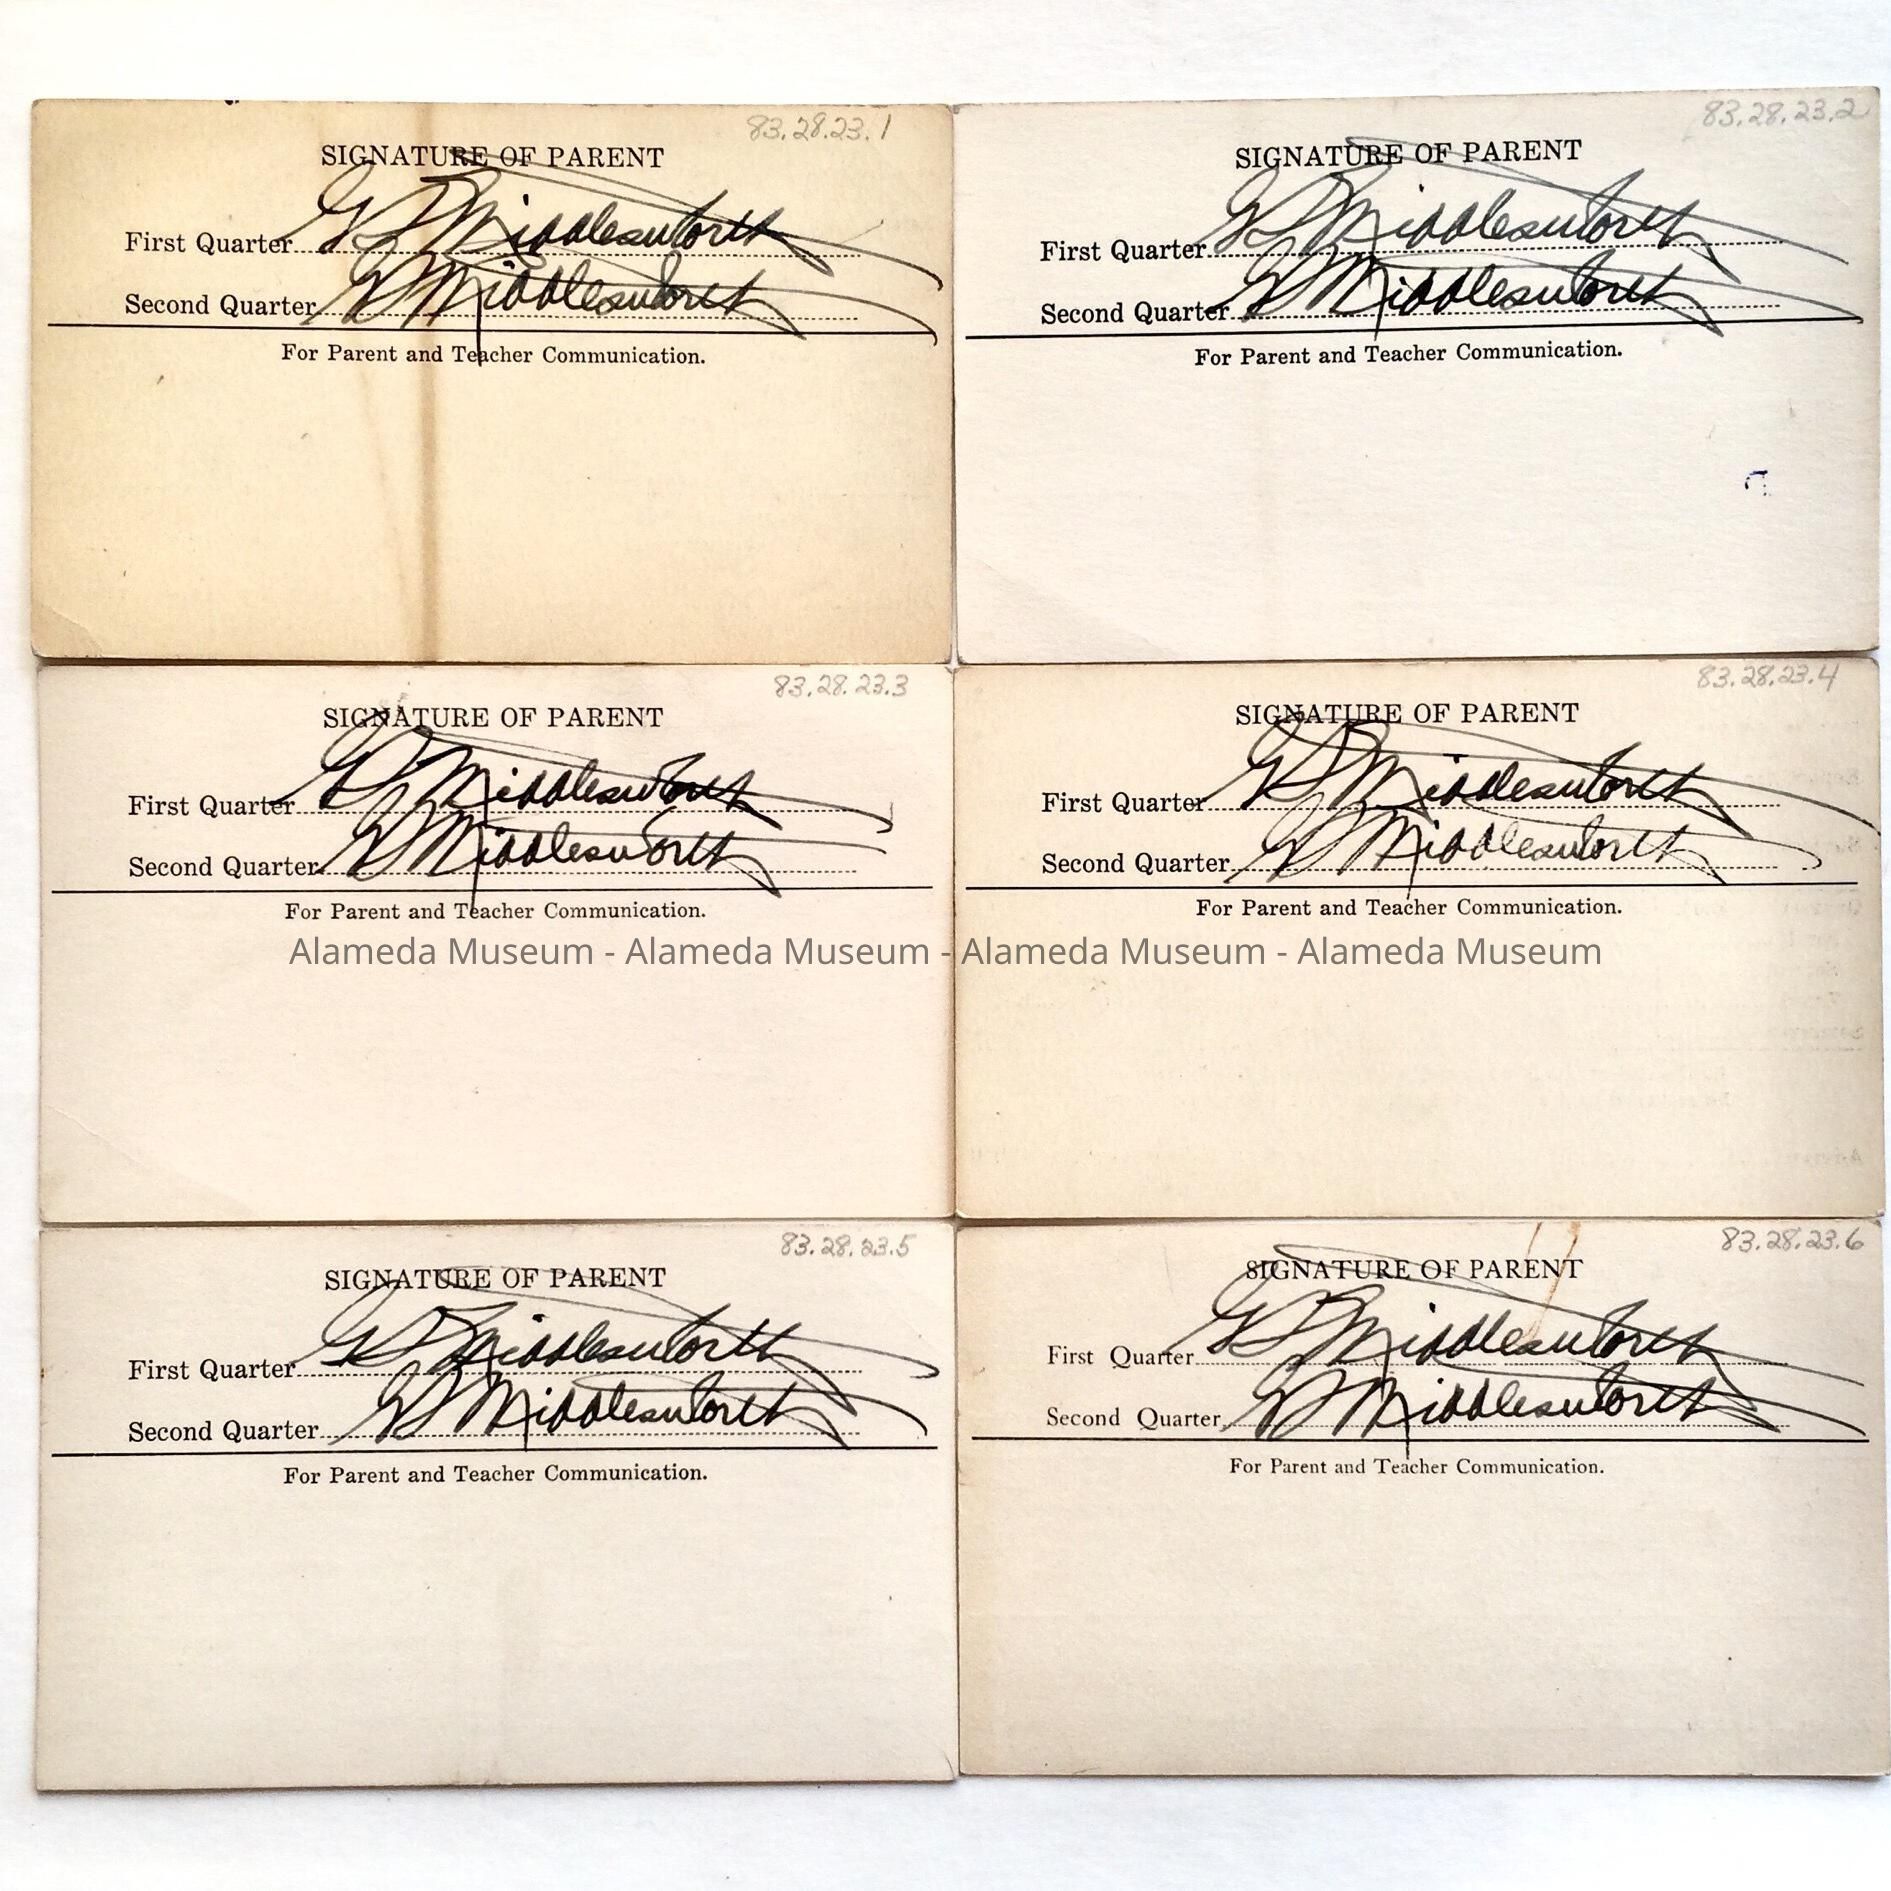 83.28.23.1
SIGNATURE OF PARENT
First Quarter Middlesworth
Second Quarter Middlesworth
For Parent and Teacher Communication.
83.28.23.2
SIGNATURE OF PARENT
First Quarter Middlesworth
Second Quarter Middlesworth
For Parent and Teacher Communication.
83.28.23.3
SIGNATURE OF PARENT
First Quarter Middlesworth
Second Quarter Middlesworth
For Parent and Teacher Communication.
83.28.23.4
SIGNATURE OF PARENT
First Quarter Middlesworth
Second Quarter Middlesworth
For Parent and Teacher Communication.
Alameda Museum - Alameda Museum - Alameda Museum - Alameda Museum
83.28.23.5
SIGNATURE OF PARENT
First Quarter Middlesworth
Second Quarter Middlesworth
For Parent and Teacher Communication.
83.28.23.6
SIGNATURE OF PARENT
First Quarter Middlesworth
Second Quarter Middlesworth
For Parent and Teacher Communication.